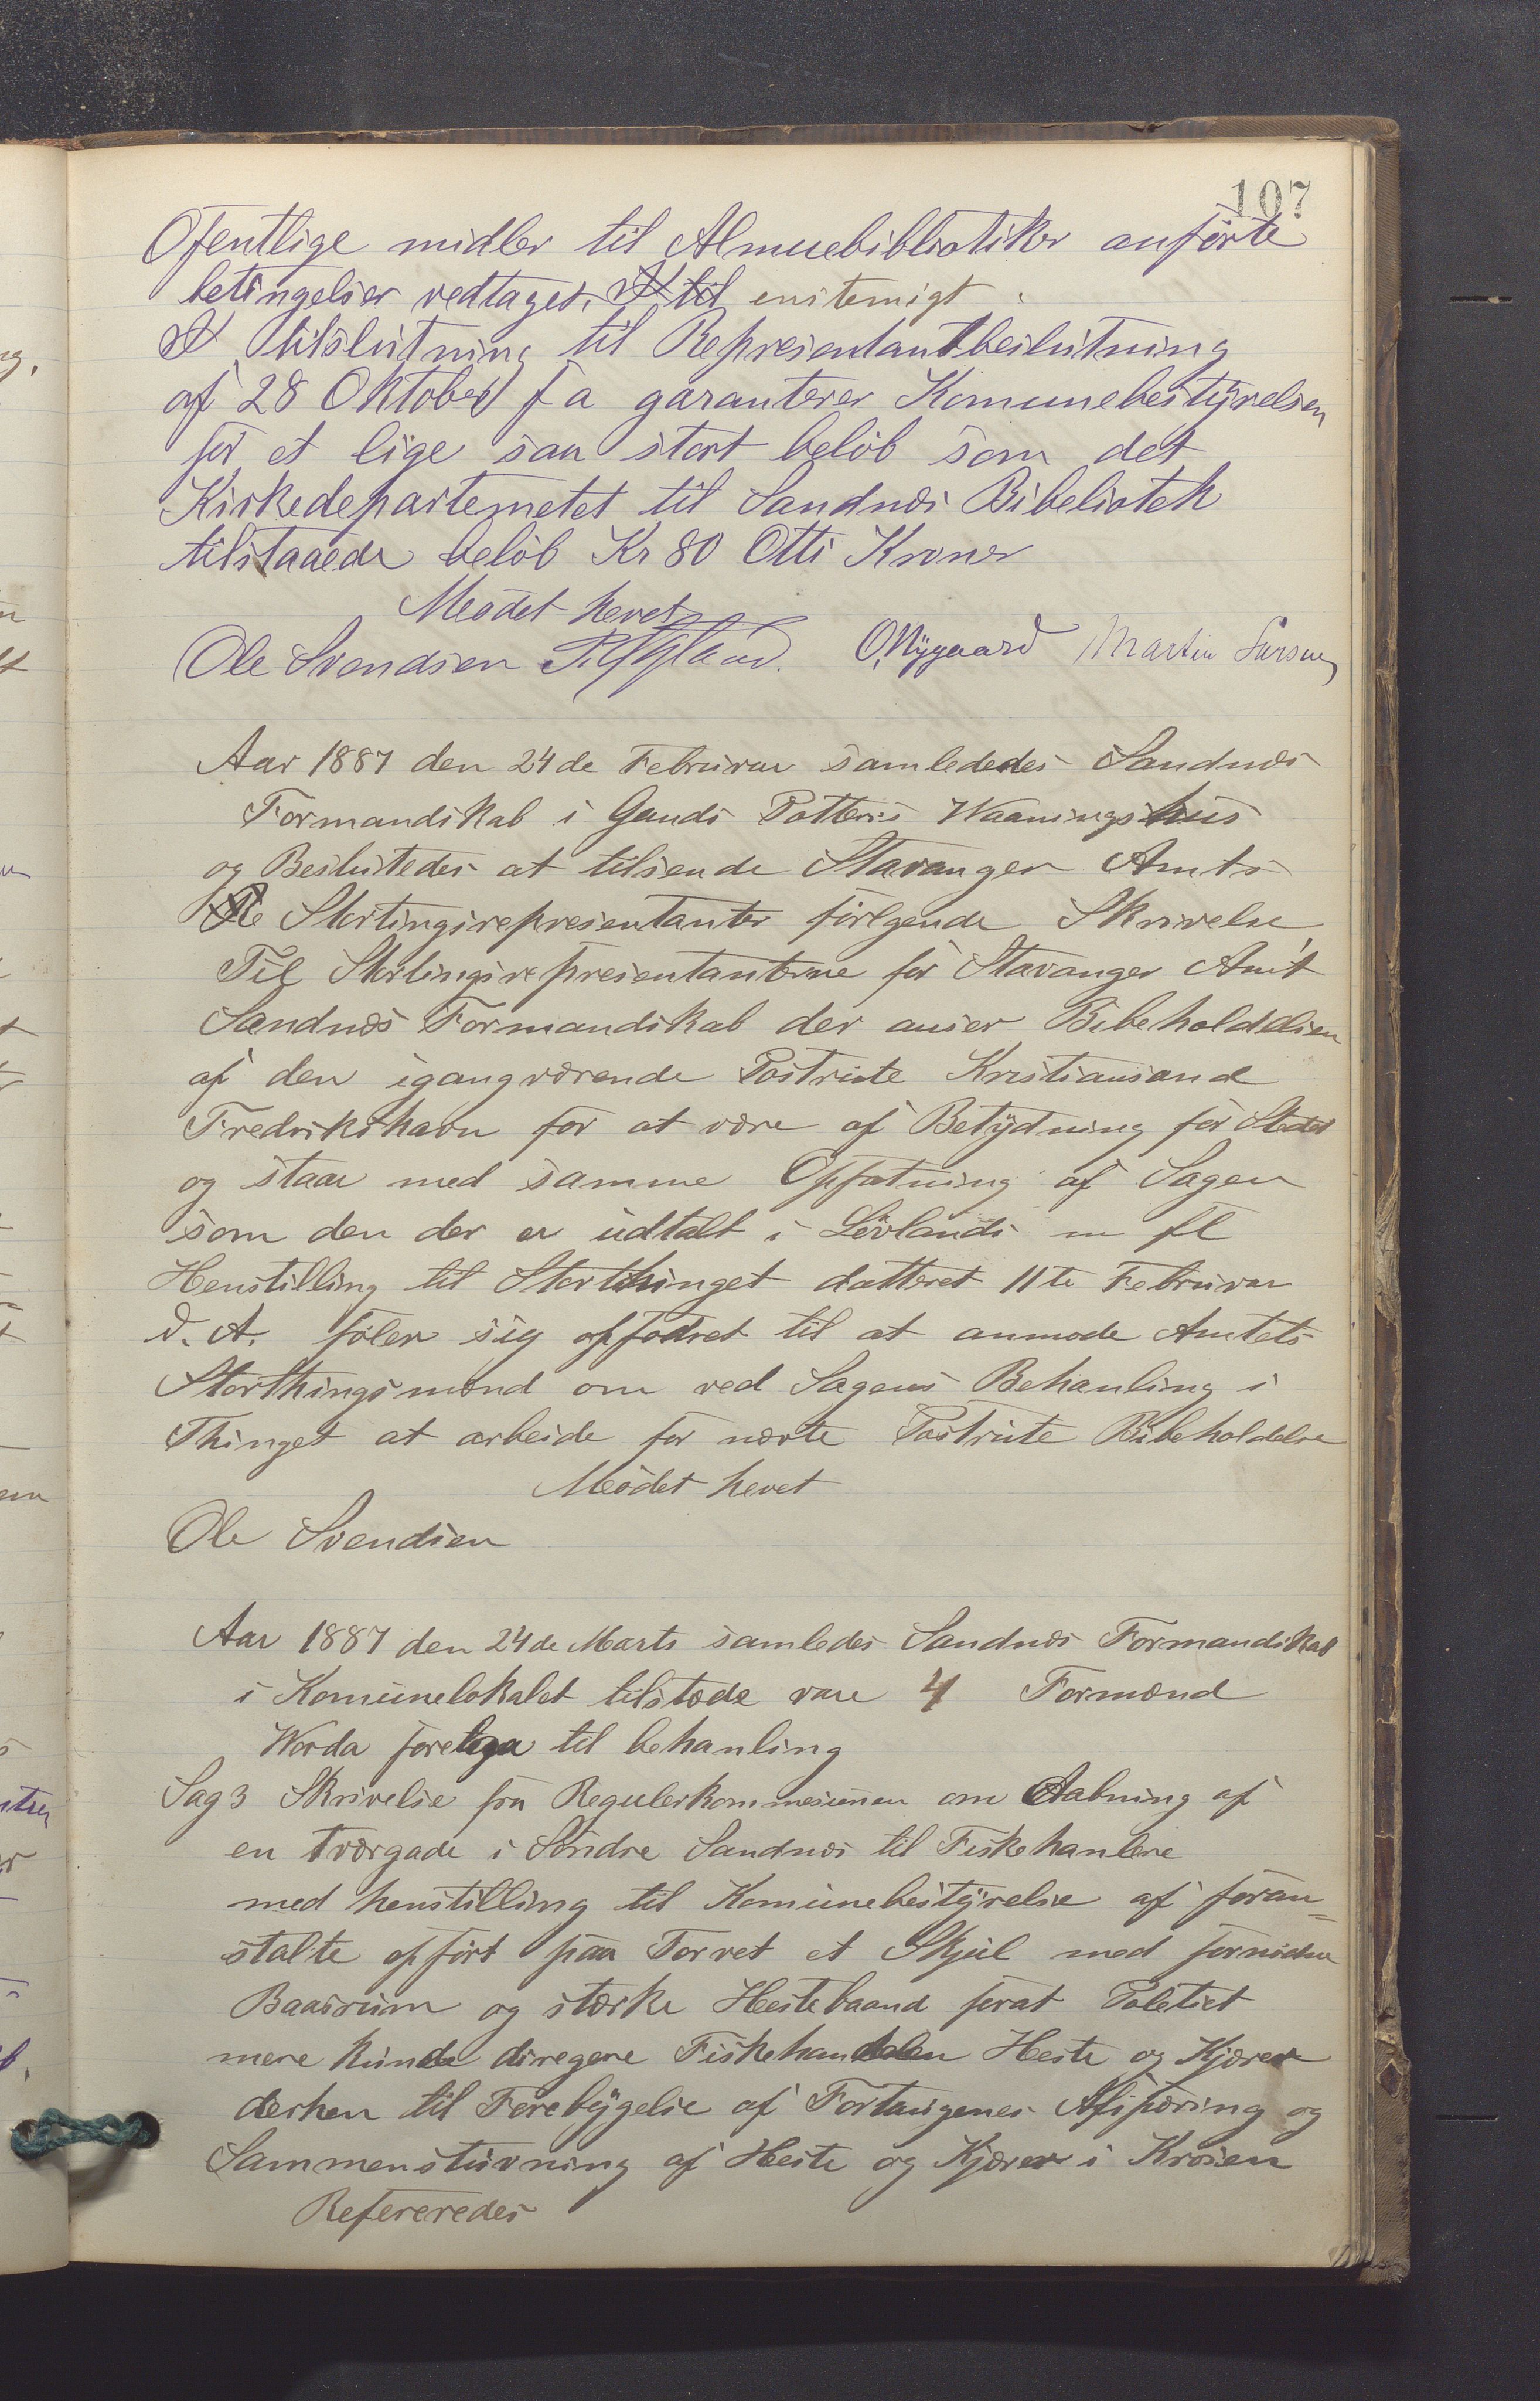 107
Ofentlige midler til Almuebibliotiker anförte
betingelser vedtages. enstemigt
tilslutning til Representantbeslutning
af 28 Oktober f a garanterer Komunebestyrelsen
for et lige saa stort belöb som det
Kirkedepartemetet til Sandnæs Bibeliotek
tilstaaede belöb Kr 80 Otti Kroner
Mödet hevet
Ole Svendsen O. Nygaard Martin Larsen
Aar 1887 den 24de Februar samlededes Sandnæs
Formandskab i Gands Potteris Waaningshus
og Besluttedes at tilsende Stavanger Amts
Stortingsrepresentanter förlgende Skrivelse
Til Stortingsrepresentanterne for Stavanger Amt
Sandnæs Formandskab der anser Bibeholdelsen
af den igangværende Postrute Kristiansand
Fredrikshavn for at være af Betydning for Stedet
og staar med samme Opfatning af Sagen
som den der er udtalt i Lövlands m fl
Henstilling til Storthinget datteret 11te Februar
d. A. föler sig opfodret til at anmode Amtets
Storthingsmænd om ved Sagens Behanling i
Thinget at arbeide for nævte Postrute Bibeholdelse
Mödet hevet
Ole Svendsen
Aar 1887 den 24de Marts samledes Sandnæs Formandskab
i Komunelokalet tilstæde vare 4 Formænd
Worda forelga til behanling
Sag 3 Skrivelse fra Regulerkommesionen om Aabning af
en Tværgade i Söndre Sandnæs til Fiskehanlere
med henstilling til Komunebestyrelse af foran=
stalte opfört paa Torvet et Skjul med fornödne
Baasrum og stærke Hestebaand forat Poletiet
mere kunde diregere Fiskehandelen Heste og Kjærer
derhen til Forebygelse af Fortaugenes Afspæring og
Sammenstuvning af Heste og Kjærer i Krosen
Refereredes